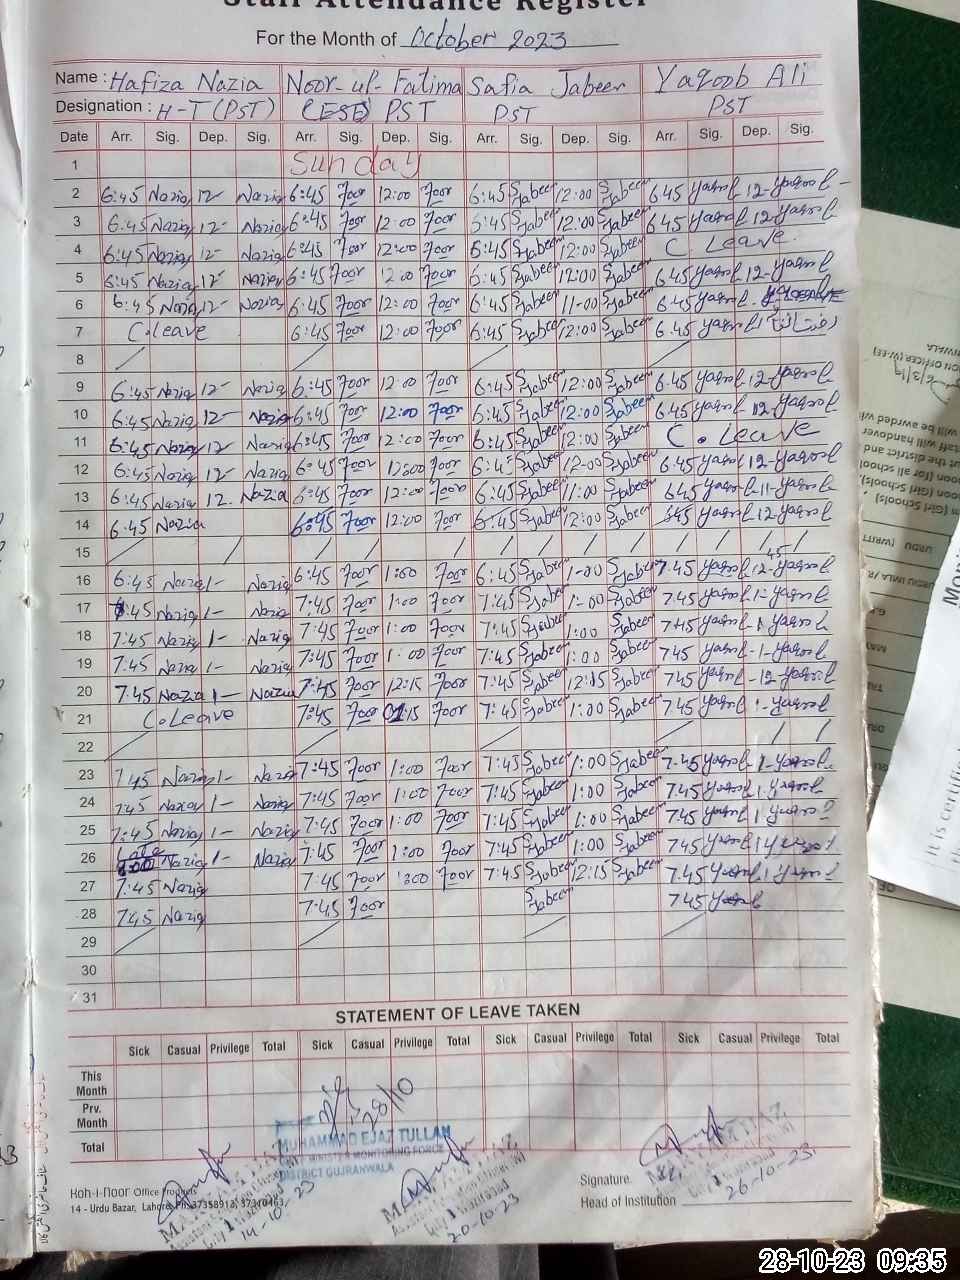 Staff Attendance Register
For the Month of October 2023
Name : Hafiza Nazia Noor-ul-Fatima Safia Jabeen Yaqoob Ali
Designation : H-T (PST) (ESE) PST PST PST
Date Arr. Sig. Dep. Sig. Arr. Sig. Dep. Sig. Arr. Sig. Dep. Sig. Arr. Sig. Dep. Sig.
1 Sunday
2 6:45 Nazia 12- Nazia 6:45 Noor 12:00 Noor 6:45 S Jabeen 12:00 S Jabeen 6 45 Yaqoob 12- Yaqoob
3 6:45 Nazia 12- Nazia 6:45 Noor 12:00 Noor 6:45 S Jabeen 12:00 S Jabeen 6 45 Yaqoob 12 Yaqoob
4 6:45 Nazia 12- Nazia 6:45 Noor 12:00 Noor 6:45 S Jabeen 12:00 S Jabeen C. Leave.
5 6:45 Nazia 12- Nazia 6:45 Noor 12:00 Noor 6:45 S Jabeen 12:00 S Jabeen 6.45 Yaqoob 12- Yaqoob
6 6:45 Nazia 12- Nazia 6:45 Noor 12:00 Noor 6:45 S Jabeen 11-00 S Jabeen 6.45 Yaqoob
7 C.leave 6:45 Noor 12:00 Noor 6:45 S Jabeen 12:00 S Jabeen 6.45 Yaqoob
8
9 6:45 Nazia 12- Nazia 6:45 Noor 12:00 Noor 6:45 S Jabeen 12:00 S Jabeen 6.45 Yaqoob 12- Yaqoob
10 6:45 Nazia 12- Nazia 6:45 Noor 12:00 Noor 6:45 S Jabeen 12:00 S Jabeen 6.45 Yaqoob 12- Yaqoob
11 6:45 Nazia 12 Nazia 6:45 Noor 12:00 Noor 6:45 S Jabeen 12:00 S Jabeen C. Leave
12 6:45 Nazia 12- Nazia 6:45 Noor 12:00 Noor 6:45 S Jabeen 12-00 S Jabeen 6.45 Yaqoob 12- Yaqoob
13 6:45 Nazia 12. Nazia 6:45 Noor 12:00 Noor 6:45 S Jabeen 11:00 S Jabeen 6.45 Yaqoob -11- Yaqoob
14 6:45 Nazia 6:45 Noor 12:00 Noor 6:45 S Jabeen 12:00 S Jabeen 6.45 Yaqoob 12 Yaqoob
15
16 6:45 Nazia 1- Nazia 6:45 Noor 1:00 Noor 6:45 S Jabeen 1-00 S Jabeen 7.45 Yaqoob 12-45 Yaqoob
17 7:45 Nazia 1- Nazia 7:45 Noor 1:00 Noor 7:45 S Jabeen 1-00 S Jabeen 7.45 Yaqoob 1- Yaqoob
18 7:45 Nazia 1- Nazia 7:45 Noor 1:00 Noor 7:45 S Jabeen 1:00 S Jabeen 7.45 Yaqoob - 1 Yaqoob
19 7:45 Nazia 1- Nazia 7:45 Noor 1:00 Noor 7:45 S Jabeen 1:00 S Jabeen 745 Yaqoob -1- Yaqoob
20 7:45 Nazia 1- Nazia 7:45 Noor 12:15 Noor 7:45 S Jabeen 12:15 S Jabeen 745 Yaqoob -12- Yaqoob
21 C.Leave 7:45 Noor 01:15 Noor 7:45 S Jabeen 1:00 S Jabeen 7.45 Yaqoob 1- Yaqoob
22
23 7:45 Nazia 1- Nazia 7:45 Noor 1:00 Noor 7:45 S Jabeen 1:00 S Jabeen 7.45 Yaqoob -1- Yaqoob
24 7:45 Nazia 1- Nazia 7:45 Noor 1:00 Noor 7:45 S Jabeen 1:00 S Jabeen 7.45 Yaqoob 1 Yaqoob
25 7:45 Nazia 1- Nazia 7:45 Noor 1:00 Noor 7:45 S Jabeen 1:00 S Jabeen 7.45 Yaqoob 1 Yaqoob
26 Nazia 1- Nazia 7:45 Noor 1:00 Noor 7:45 S Jabeen 1:00 S Jabeen 745 Yaqoob 1 Yaqoob
27 7:45 Nazia 7:45 Noor Noor 7:45 S Jabeen 12:15 S Jabeen 7.45 Yaqoob 1 Yaqoob
28 7:45 Nazia 7:45 Noor S Jabeen 7.45 Yaqoob
29
30
31
STATEMENT OF LEAVE TAKEN
Sick Casual Privilege Total Sick Casual Privilege Total Sick Casual Privilege Total Sick Casual Privilege Total
This Month
Prv. Month
Total
28/10
MUHAMMAD EJAZ TULLAH
CHIEF MINISTER MONITORING FORCE
DISTRICT GUJRANWALA
Koh-i-noor Office Products
14 - Urdu Bazar, Lahore. Ph: 37358913, 37310463
14-10-23
20-10-23
Signature.
Head of Institution
26-10-23
It is certifie
28-10-23 09:35